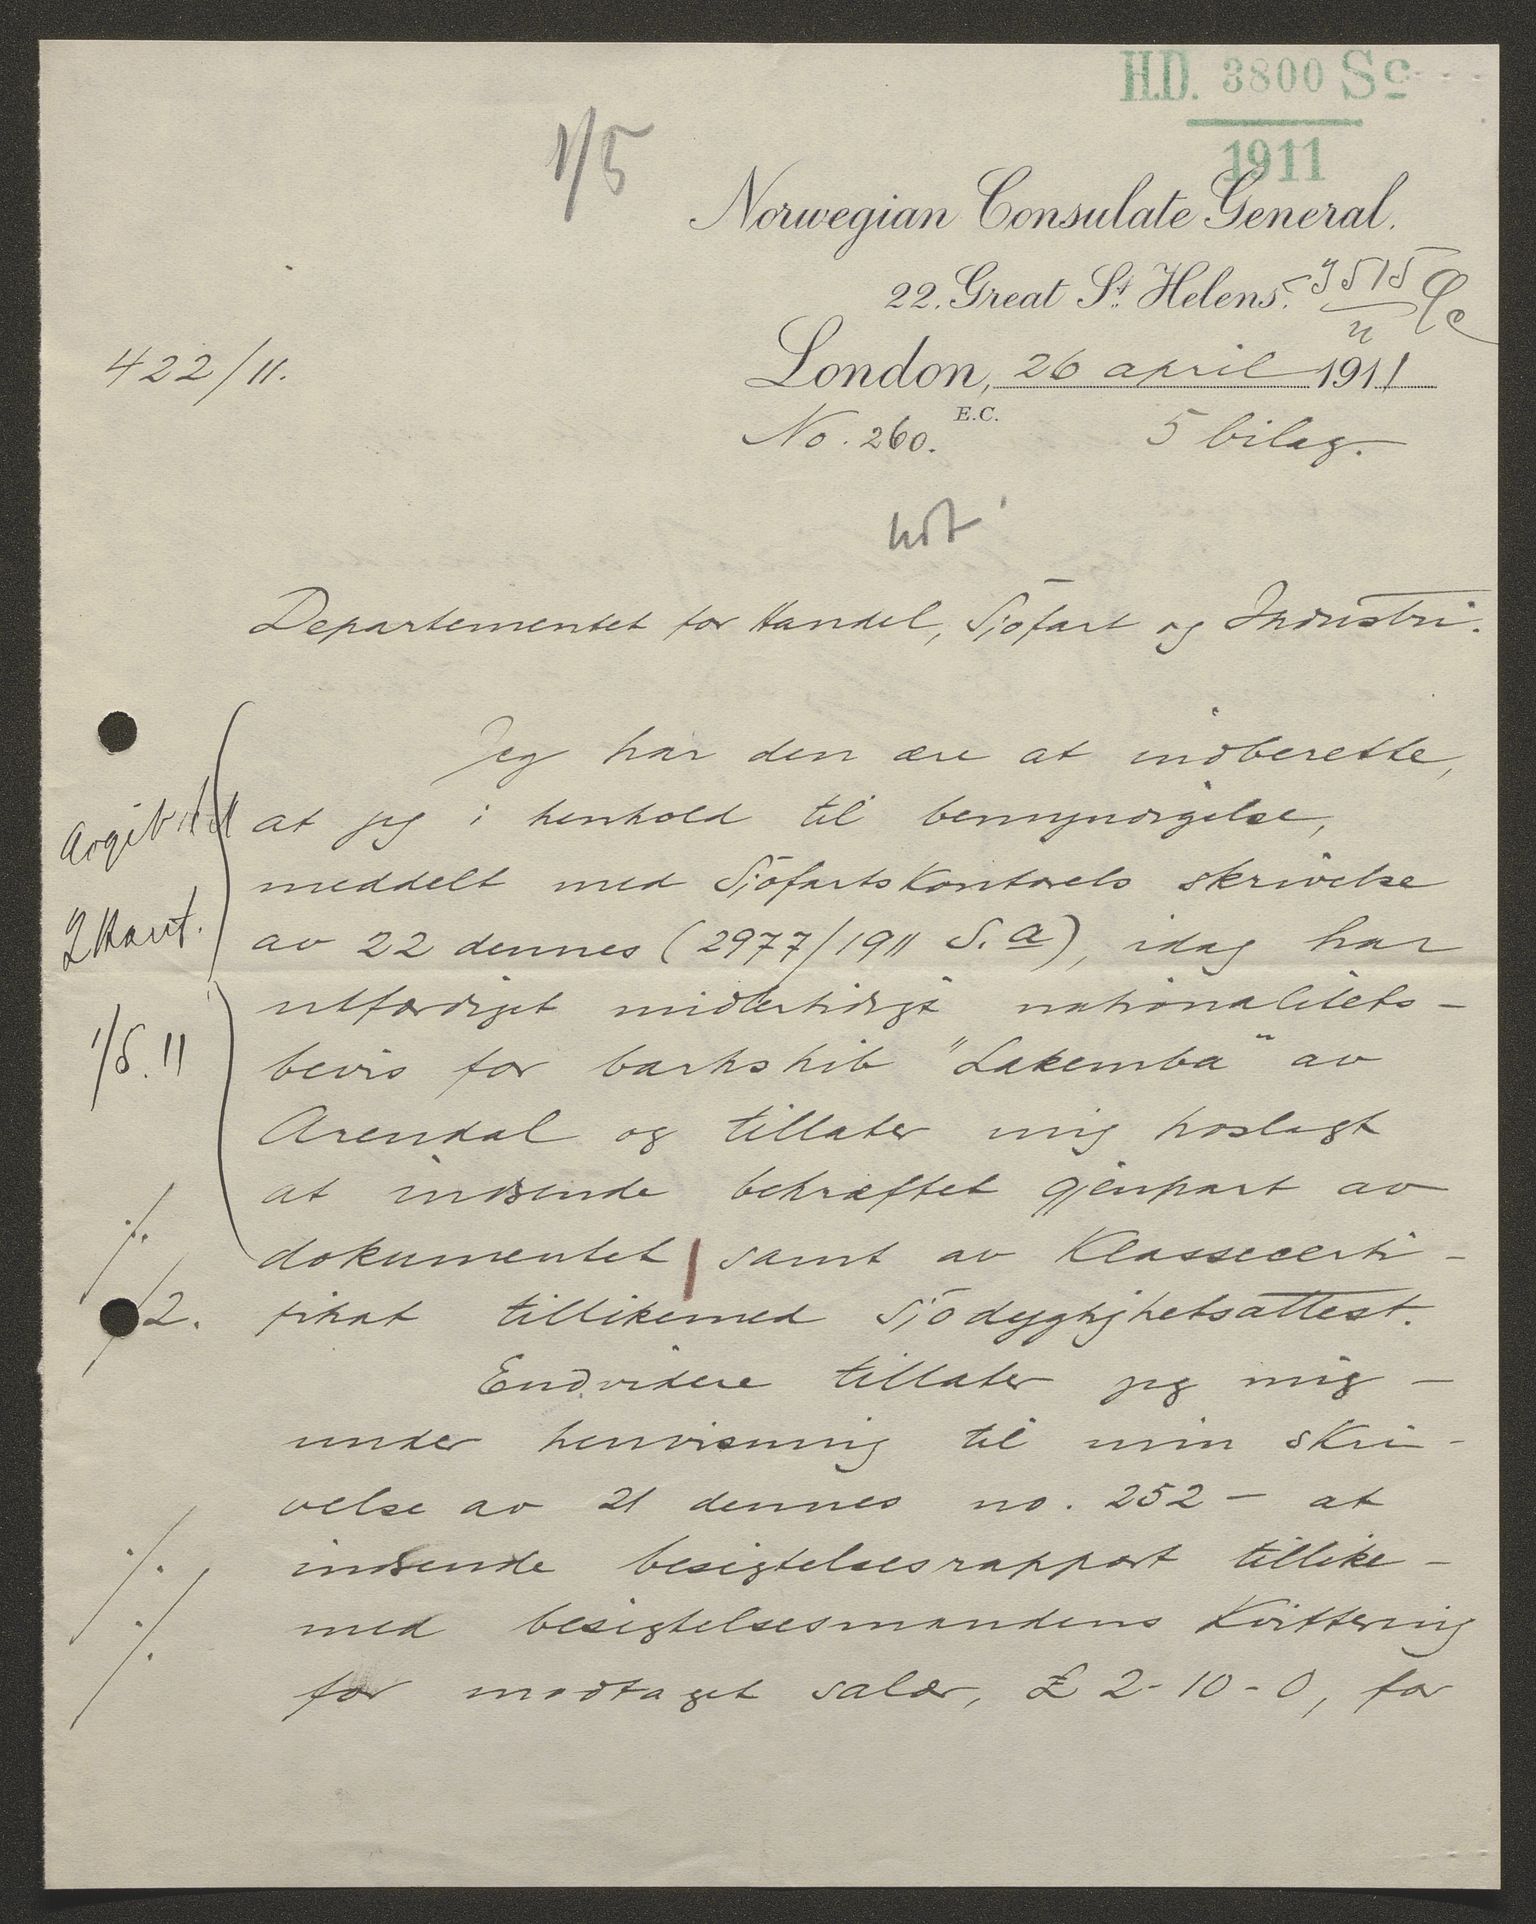 H.D. 3800 Sc
1911
1/5
Norwegian Consulate General.
22. Great St. Helens.
422/11.
London, 26 april 1911
E.C.
No. 260.
5 bilag.
Departementet for Handel, Sjöfart og Industri.
Jeg har den ære at indberette,
at jeg i henhold til bemyndigelse,
meddelt med Sjöfartskontorets skrivelse
av 22 dennes (2977/1911 S. a), idag har
utfærdiget midlertidigt nationalitets-
bevis for barkskib "Lakemba" av
Arendal og tillater mig hoslagt
at indsende bekræftet gjenpart av
dokumentet samt av Klassecerti-
fikat tillikemed Sjödygtighetsattest.
Endvidere tillater jeg mig -
under henvisning til min skri-
velse av 21 dennes no. 252 - at
indsende besigtelsesrapport tillike-
med besigtelsesmandens Kvittering
for modtaget salær, £ 2-10-0, for
1/5. 11
2.